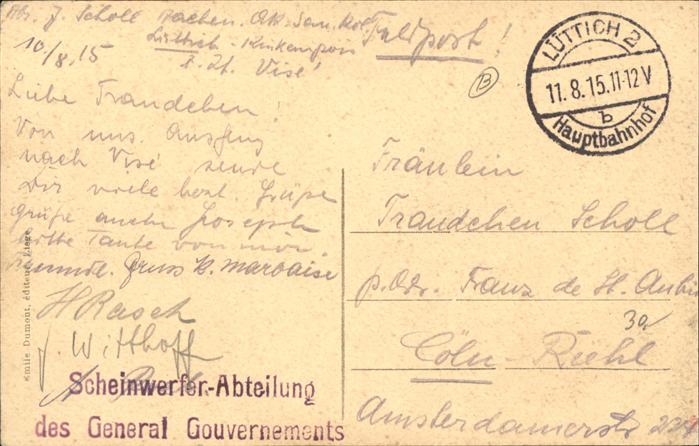 Abs. J. Scholl Aachen.
Feldpost!
10/8.15
Lüttich - Kinkempois
z. Zt. Visé
Liebe Traudchen!
Von uns. Ausflug
nach Visé sende
Dir viele herzl. Grüße
grüße auch Joseph
bitte Tante von mir.
Freundl. Gruss k. Marbaise
H Rasch
J. Witthoff
Scheinwerfer-Abteilung
des General Gouvernements
Emile Dumont, éditeur, Liége
LÜTTICH 2
11. 8. 15. 11-12 V
b
Hauptbahnhof
B
Fräulein
Traudchen Scholl
p. Adr. Franz de St. Aubin
30
Cöln-Riehl
Amsterdamerstr